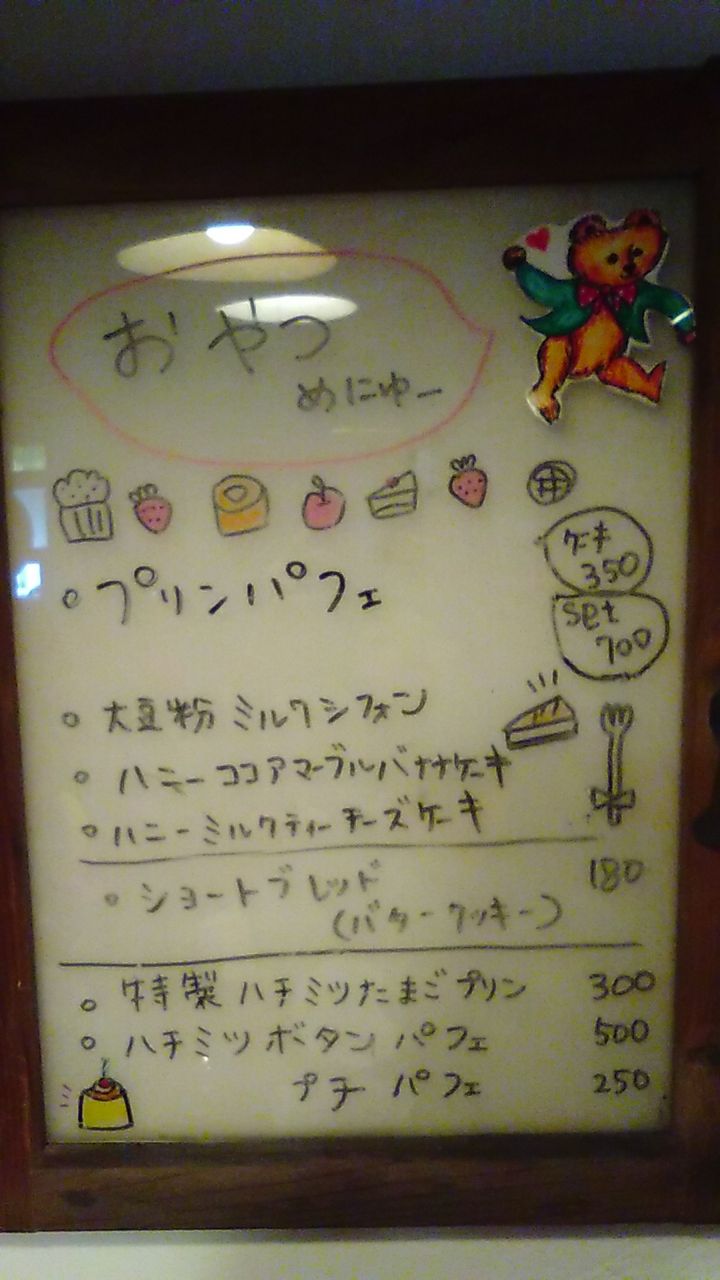 おやつ
めにゅー
ケーキ
350
Set
700
。プリンパフェ
。大豆粉 ミルクシフォン
。ハニーココアマーブルバナナケーキ
。ハニーミルクティーチーズケーキ
。ショートブレッド 180
(バタークッキー)
。特製 ハチミツたまごプリン 300
。ハチミツ ボタン パフェ 500
プチ パフェ 250